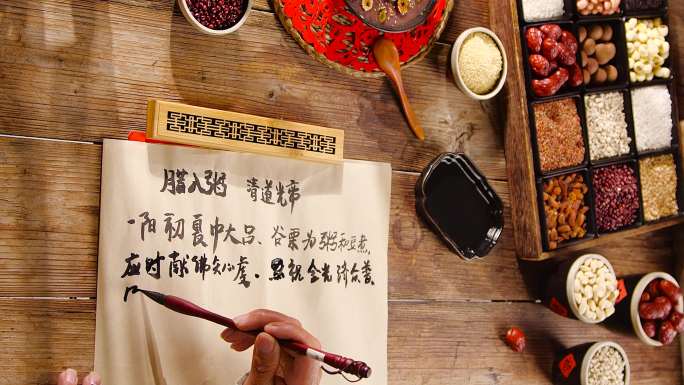 腊八粥 清道光帝
一阳初夏中大吕、谷粟为粥和豆煮、
应时献佛矢心虔、默祝金光济众普、